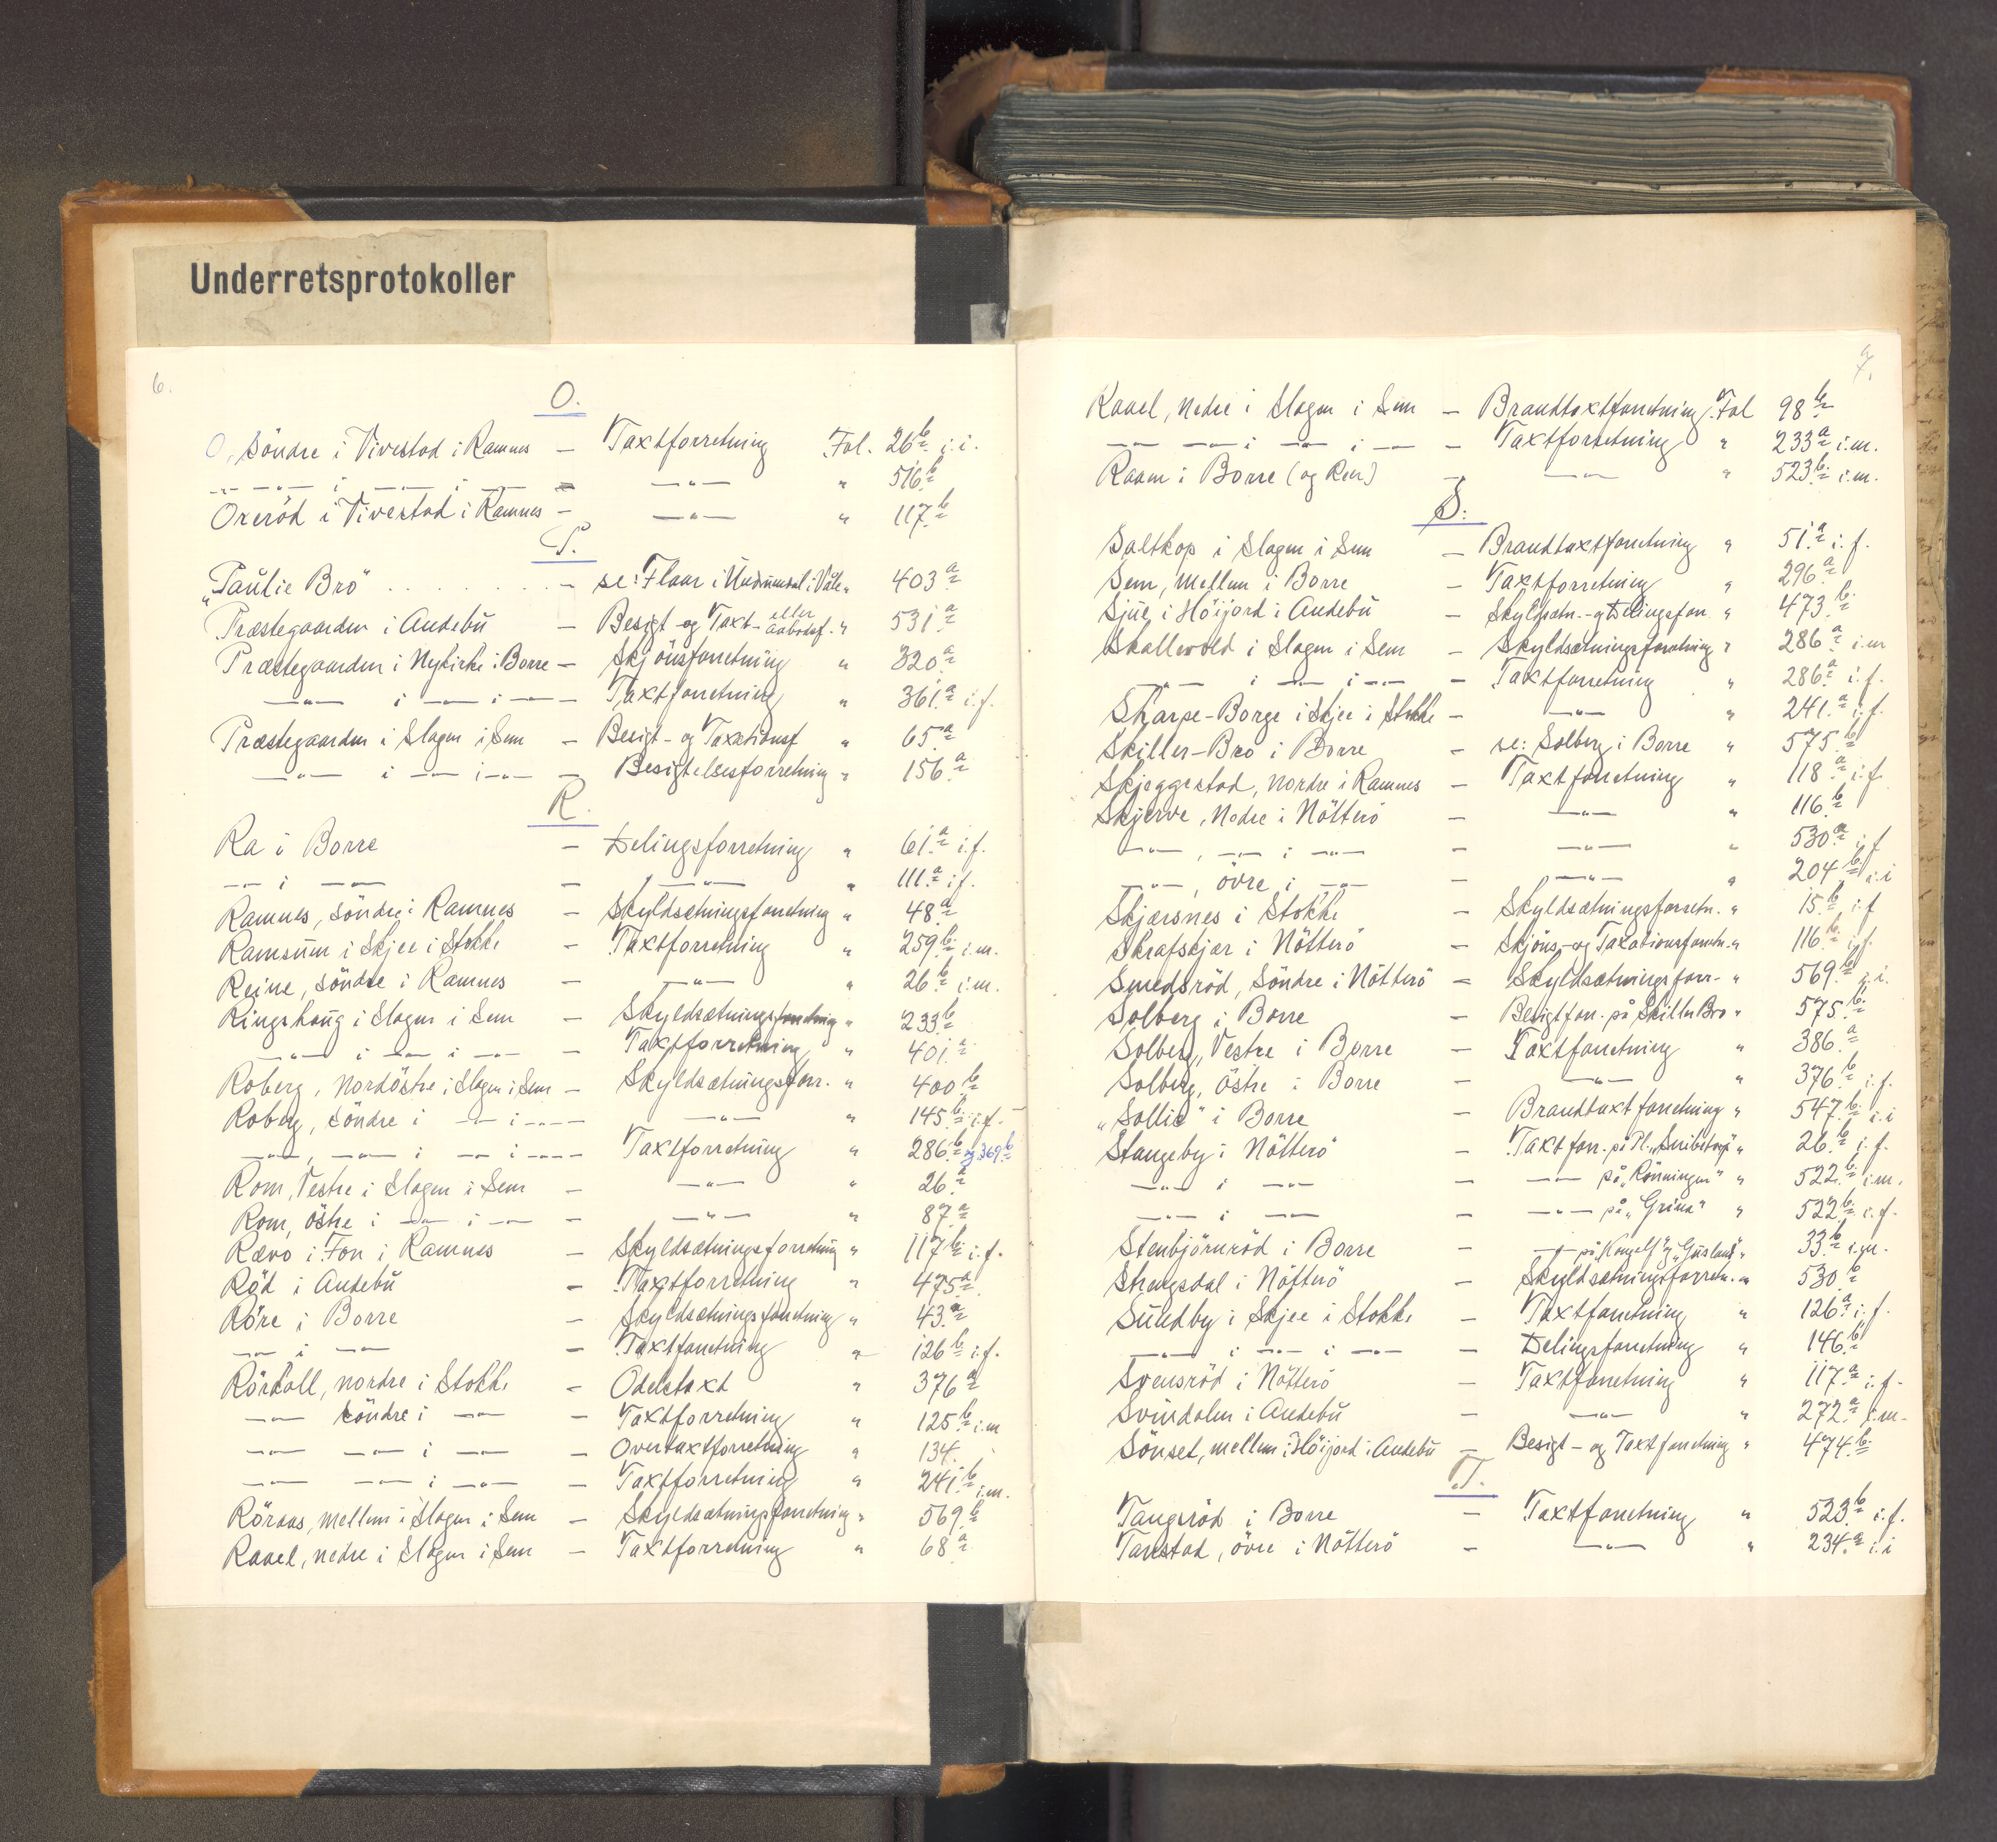 Underretsprotokoller
6.
O.
O, Söndre i Vivestad i Ramnes — Taxtforretning Fol. 26 b i.i.
—"— —"— i —"— i —"— — —"— " 516 b
Oreröd i Vivestad i Ramnes — —"— " 117 b
P.
"Paulie Bro" . . . . . . . — se: Flaar i Undrumsdal i Våle " 403 a
Præstegaarden i Andebu — Besigt- og Taxt- eller Aabodsf. " 531 a
Præstegaarden i Nykirke i Borre — Skjönsforretning " 320 a
—"— i —"— i —"— — Taxtforretning " 361 a i.f.
Præstegaarden i Slagen i Sem — Besigt- og Taxationsf " 65 a
—"— i —"— i —"— — Besigtelsesforretning " 156 a
R.
Ra i Borre — Delingsforretning " 61 a i.f.
—"— i —"— — —"— " 111 a i.f.
Ramnes, söndre i Ramnes — Skyldsætningsforretning " 48 a
Ramsum i Skjee i Stokke — Taxtforretning " 259 b i.m.
Reine, söndre i Ramnes — —"— " 26 b i.m.
Ringshaug i Slagen i Sem — Skyldsætningsforretning " 233 b
—"— i —"— i —"— — Taxtforretning " 401 a
Roberg, nordöstre i Slagen i Sem — Skyldsætningsforr. " 400 b
Roberg, söndre i —"— i —"— — —"— " 145 b i.f.
—"—, —"— i —"— i —"— — Taxtforretning " 286 b og 369 b
Rom, Vestre i Slagen i Sem — —"— " 26 a
Rom, östre i —"— i —"— — —"— " 87 a
Rævo i Fon i Ramnes — Skyldsætningsforretning " 117 b i.f.
Röd i Andebu — Taxtforretning " 475 a
Röre i Borre — Skyldsætningsforretning " 43 a
—"— i —"— — Taxtforretning " 126 b i.f.
Rörkoll, nordre i Stokke — Odelstaxt " 376 a
—"— söndre i —"— — Taxtforretning " 125 b i.m
—"— —"— i —"— — Overtaxtforretning " 134.
—"— —"— i —"— — Taxtforretning " 241 b i.m.
Röraas, mellem i Slagen i Sem — Skyldsætningsforretning " 569 b
Raael, nedre i Slagen i Sem — Taxtforretning " 68 a
7.
Raael, Nedre i Slagen i Sem — Brandtaxtforretning Fol 98 b
—"— —"— i —"— i —"— — Taxtforretning " 233 a i.m.
Raam i Borre (og Rör) — —"— " 523 b i.m.
S.
Saltkop i Slagen i Sem — Brandtaxtforretning " 51 a i.f.
Sem, mellem i Borre — Taxtforretning " 296 a
Sjue i Höijord i Andebu — Skyldsætn.- og Delingsforr. " 473 b
Skallevold i Slagen i Sem — Skyldsætningsforretning " 286 a i.m
—"— i —"— i —"— — Taxtforretning " 286 a i.f.
Skarpe-Borge i Skjee i Stokke — —"— " 241 a i.f.
Skiller-Bro i Borre — se: Solberg i Borre " 575 b
Skjeggestad, nordre i Ramnes — Taxtforretning " 118 a i.f
Skjerve, Nedre i Nötterö — —"— " 116 b
—"—, —"— i —"— — —"— " 530 a i.f
—"—, övre i —"— — —"— " 204 b i.i
Skjærsnes i Stokke — Skyldsætningsforretn. " 15 b i.f
Skrafskjær i Nötterö — Skjöns- og Taxationsforretn. " 116 b i.f.
Smedsröd, Söndre i Nötterö — Skyldsætningsforr. " 569 b i.i.
Solberg i Borre — Besigtforr. på Skiller Bro " 575 b
Solberg, Vestre i Borre — Taxtforretning " 386 a
Solberg, östre i Borre — —"— " 376 b i.f.
"Sollie" i Borre — Brandtaxtforretning " 547 b i.i
Stangeby i Nötterö — Taxtforr. på Pl. " 26 b i.f.
—"— i —"— — —"— på "Rönningen" " 522 b i.m.
—"— i —"— — —"— på "Grina" " 522 b i.f.
Stenbjörnröd i Borre — —"— på " 33 b i.m.
Strengsdal i Nötterö — Skyldsætningsforretn. " 530 b
Sundby i Skjee i Stokke — Taxtforretning " 126 a i.f.
—"— i —"— i —"— — Delingsforretning " 146 b
Svensröd i Nötterö — Taxtforretning " 117 a i.f.
Svindalen i Andebu — —"— " 272 a i.m.
Sönset, mellem i Höijord i Andebu — Besigt- og Taxtforretning " 474 b
T.
Tangsröd i Borre — Taxtforretning " 523 b i.f.
Tanstad, övre i Nötterö — —"— " 234 a i.i